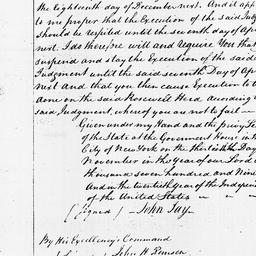 the Eighteenth day of December next. And it app
to me proper that the Execution of the said Judg
should be respited until the seventh day of Apr
next. I do therefore will and require You that
suspend and stay the Execution of the said
Judgment until the said seventh Day of Ap
next And that you then cause Execution to be
done on the said Rosewell Herd according to
said Judgment, whereof you are not to fail
Given under my Hand and the privy Seal
of the State at the Government House in the
City of New York on the thirtieth Day
November in the Year of our Lord
thousand seven hundred and Nine
And in the twentieth Year of the Independ
of the United States
(Signed) John Jay
By His Excellency's Command
John H Remsen